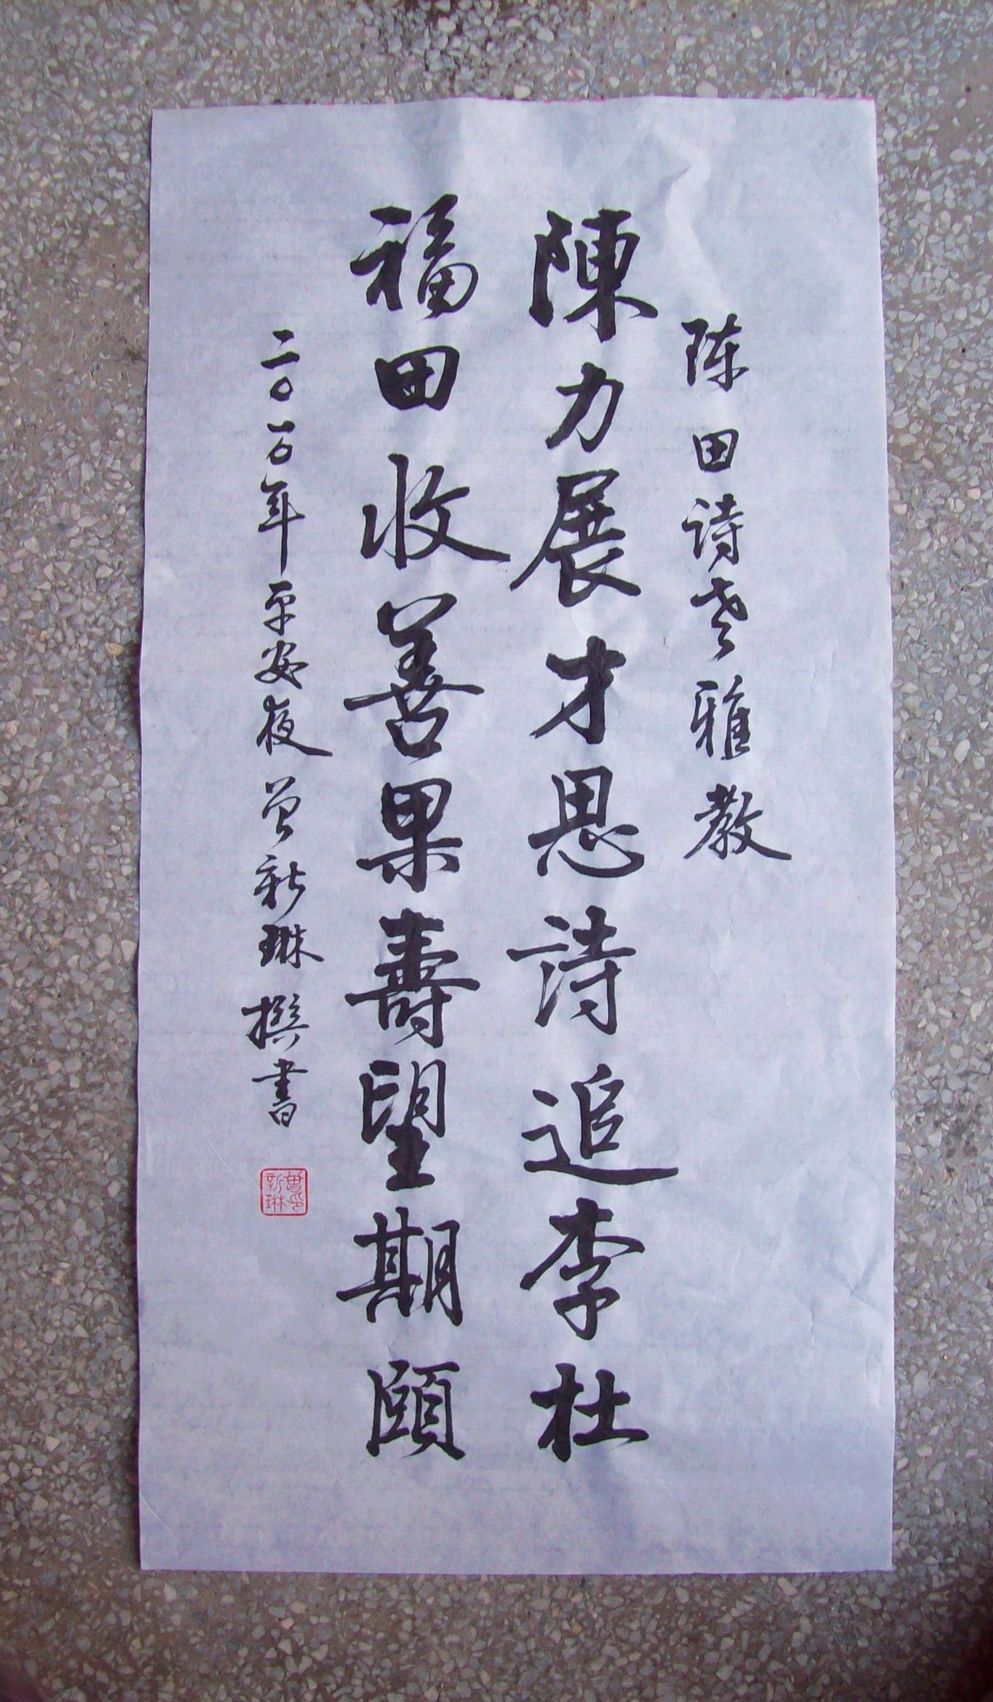 陈田诗老雅教
陳力展才思詩追李杜
福田收善果壽望期頤
二〇一〇年平安夜曾新琳撰書
曾新琳印